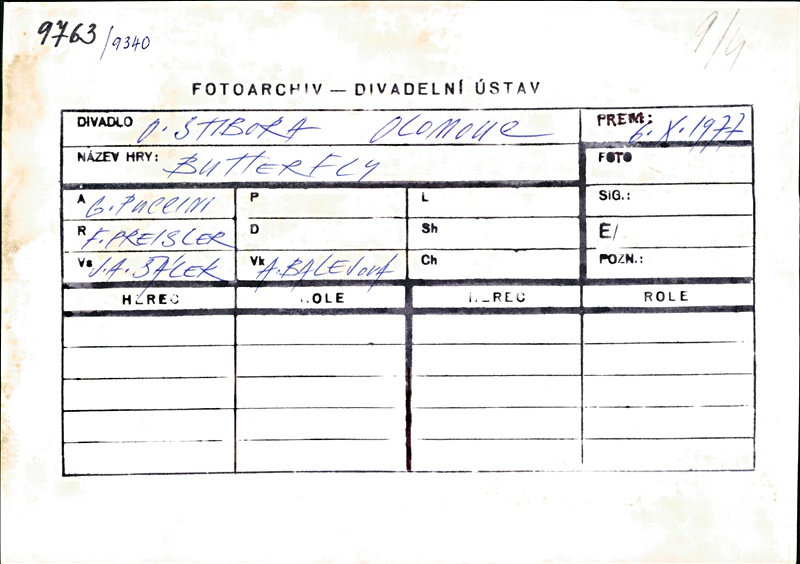 9763/9340
9/4
FOTOARCHIV — DIVADELNÍ ÚSTAV
DIVADLO O. STIBORA OLOMOUC
PREM.: 6. X. 1977
NÁZEV HRY: BUTTERFLY
FOTO
A G. PUCCINI P L SIG.:
R F. PREISLER D Sh E/
Vs J. A. ŠÁLEK Vk A. BALEJOVÁ Ch POZN.:
HEREC ROLE HEREC ROLE